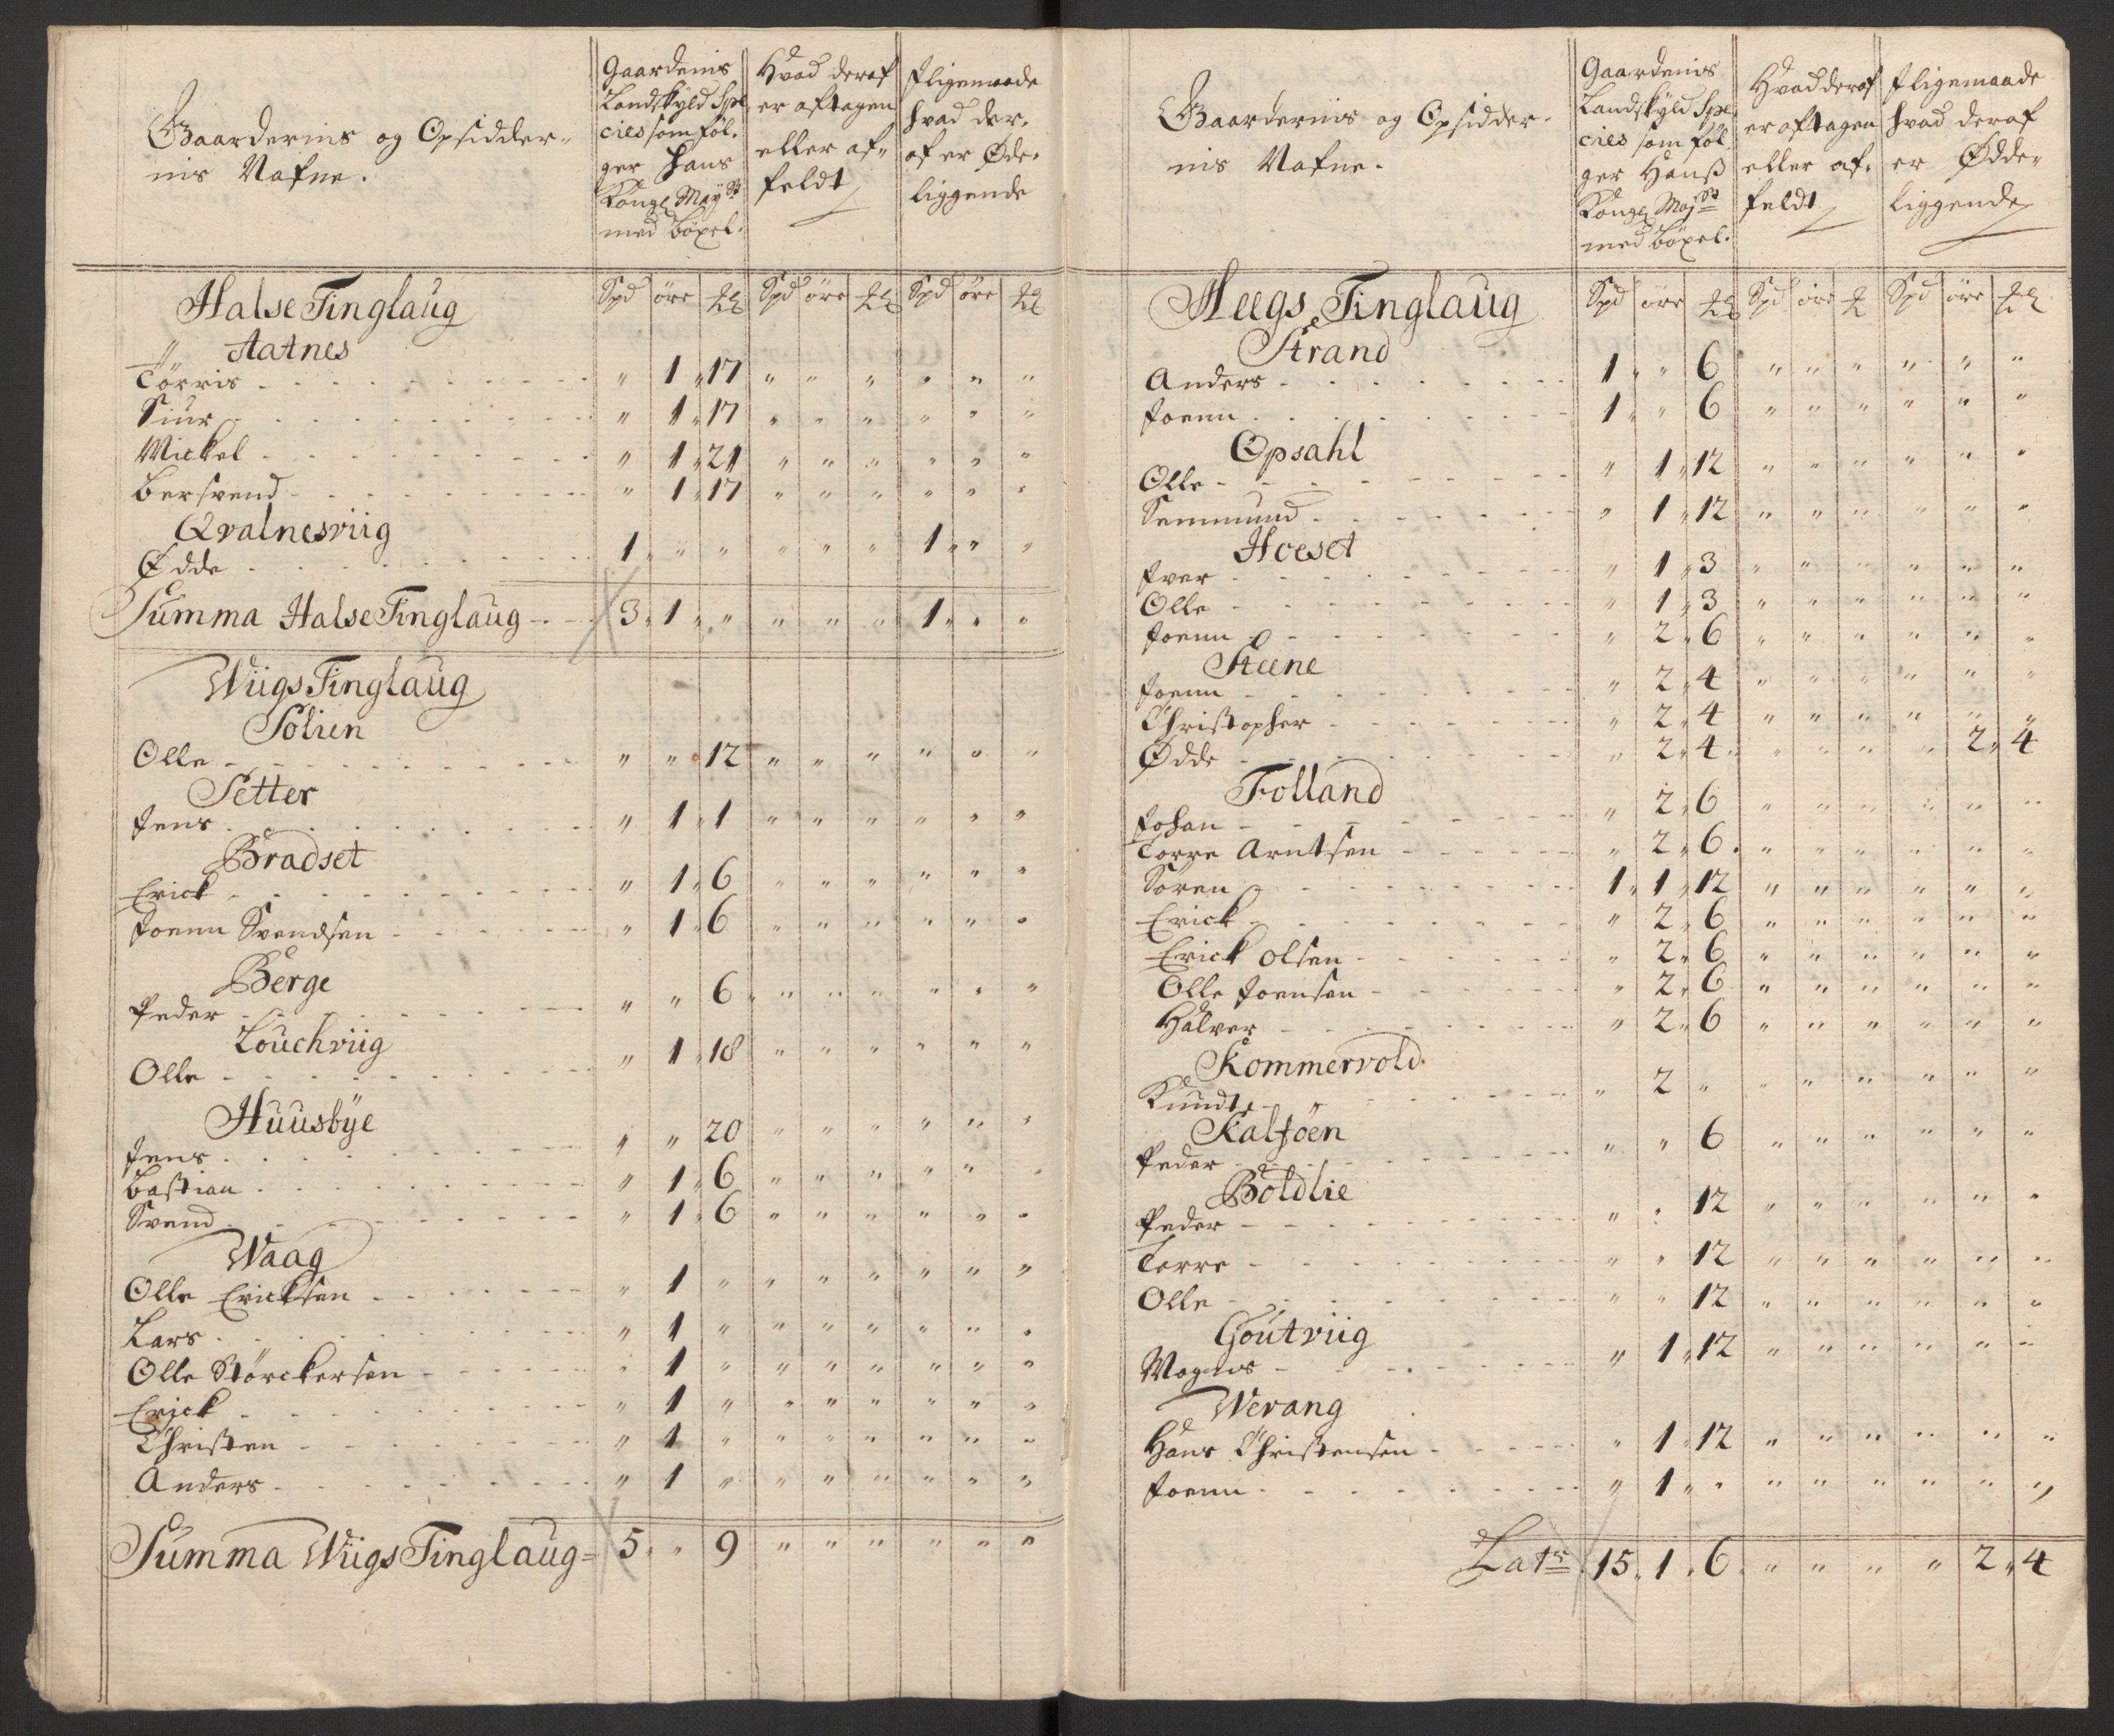 Gaardernis og Opsidder-
nis Nafne.
Gaardenis
Landskyld Spe
cies som föl-
ger Hans
Kongl May:tt
med böxel.
Hvad deraf
er aftagen
eller af-
feldt
Iligemaade
hvad der-
af er Øde-
liggende
Spd öre Spd öre Spd öre
Halse Tinglaug
Aatnes
Törris - - - " 1 " 17 " " " " " "
Siur - - - " 1 " 17 " " " " " "
Mickel - - - " 1 " 21 " " " " " "
Bersvend - - - " 1 " 17 " " " " " "
Qvalnesviig
Ødde - - - 1 " " " " " 1 " "
Summa Halse Tinglaug - - 3 " 1 " " " " " 1 " "
Wiigs Tinglaug
Solien
Olle - - - " " 12 " " " " " "
Setter
Jens - - - " 1 " 1 " " " " " "
Bradset
Erick - - - " 1 " 6 " " " " " "
Joenn Svendsen - - - " 1 " 6 " " " " " "
Berge
Peder - - - " " 6 " " " " " "
Louchviig
Olle - - - " 1 " 18 " " " " " "
Huusbÿe
Jens - - - " " 20 " " " " " "
Bastian - - - " 1 " 6 " " " " " "
Svend - - - " 1 " 6 " " " " " "
Waag
Olle Ericksen - - - " 1 " " " " " " "
Lars - - - " 1 " " " " " " "
Olle Störckersen - - - " 1 " " " " " " "
Erick - - - " 1 " " " " " " "
Christen - - - " 1 " " " " " " "
Anders - - - " 1 " " " " " " "
Summa Wiigs Tinglaug = 5 " " 9 " " " " " "
Gaardernis og Opsidder-
nis Nafne.
Gaardenis
Landskyld Spe
cies som föl-
ger Hanß
Kongl Maj:tt
med böxel.
Hvad deraf
er aftagen
eller af-
feldt
Iligemaade
hvad deraf
er Ødde-
liggende
Spd öre Spd öre Spd öre
Heegs Tinglaug
Strand
Anders - - - 1 " " 6 " " " " " "
Joenn - - - 1 " " 6 " " " " " "
Opsahl
Olle - - - " 1 " 12 " " " " " "
Semmund - - - " 1 " 12 " " " " " "
Hoeset
Iver - - - " 1 " 3 " " " " " "
Olle - - - " 1 " 3 " " " " " "
Joenn - - - " 2 " 6 " " " " " "
Steene
Joenn - - - " 2 " 4 " " " " " "
Christopher - - - " 2 " 4 " " " " " "
Ødde - - - " 2 " 4 " " " " 2 " 4
Folland
Johan - - - " 2 " 6 " " " " " "
Torre Arntsen - - - " 2 " 6 " " " " " "
Sören - - - 1 " 1 " 12 " " " " " "
Erick - - - " 2 " 6 " " " " " "
Erick Olsen - - - " 2 " 6 " " " " " "
Olle Joensen - - - " 2 " 6 " " " " " "
Halver - - - " 2 " 6 " " " " " "
Kommervold
Knudt - - - " 2 " " " " " " "
Kalföen
Peder - - - " " 6 " " " " " "
Boldlie
Peder - - - " " 12 " " " " " "
Torre - - - " " 12 " " " " " "
Olle - - - " " 12 " " " " " "
Goutviig
Magnus - - - " 1 " 12 " " " " " "
Werang
Hans Christensen - - - " 1 " 12 " " " " " "
Joenn - - - " 1 " " " " " " "
Lats 15 " 1 " 6 " " " " 2 " 4